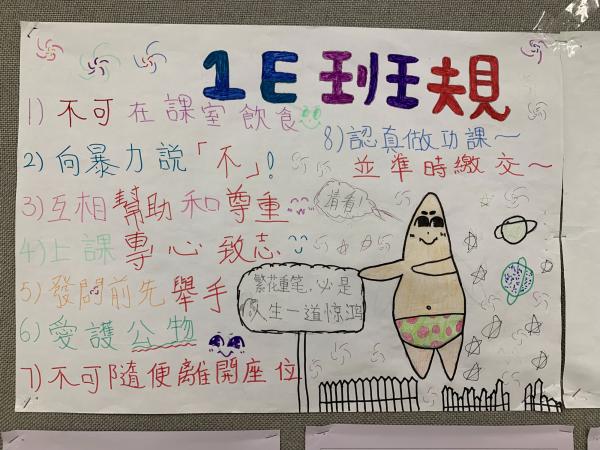 1E 班規
1) 不可在課室飲食
2) 向暴力說「不」!
3) 互相幫助和尊重
4) 上課專心致志
5) 發問前先舉手
6) 愛護公物
7) 不可隨便離開座位
8) 認真做功課～
並準時繳交～
請看!
繁花重笔,必是
人生一道惊鸿